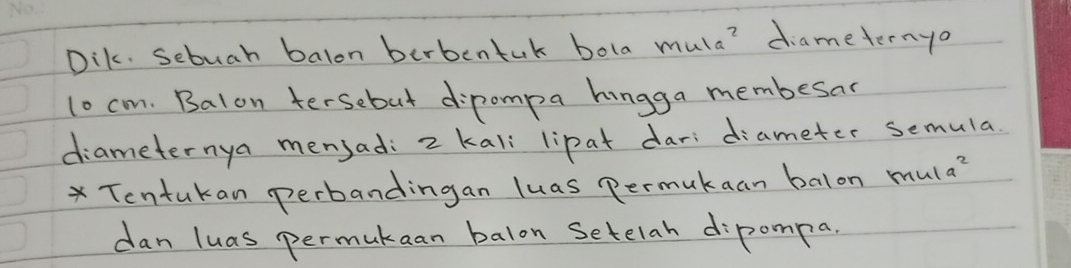 No.
Dik. Sebuah balon berbentuk bola mula² diameternya
10 cm. Balon tersebut dipompa hingga membesar
diameternya menjadi 2 kali lipat dari diameter semula.
* Tentukan perbandingan luas permukaan balon mula²
dan luas permukaan balon setelah dipompa.